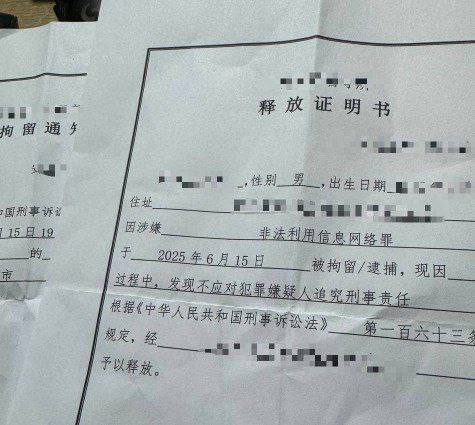 拘留通知
和国刑事诉讼
月15日19
的
市
释放证明书
,性别 男 ,出生日期
住址
因涉嫌 非法利用信息网络罪
于 2025年6月15日 被拘留/逮捕,现因
过程中,发现不应对犯罪嫌疑人追究刑事责任
根据《中华人民共和国刑事诉讼法》 第一百六十三条
规定,经
予以释放。